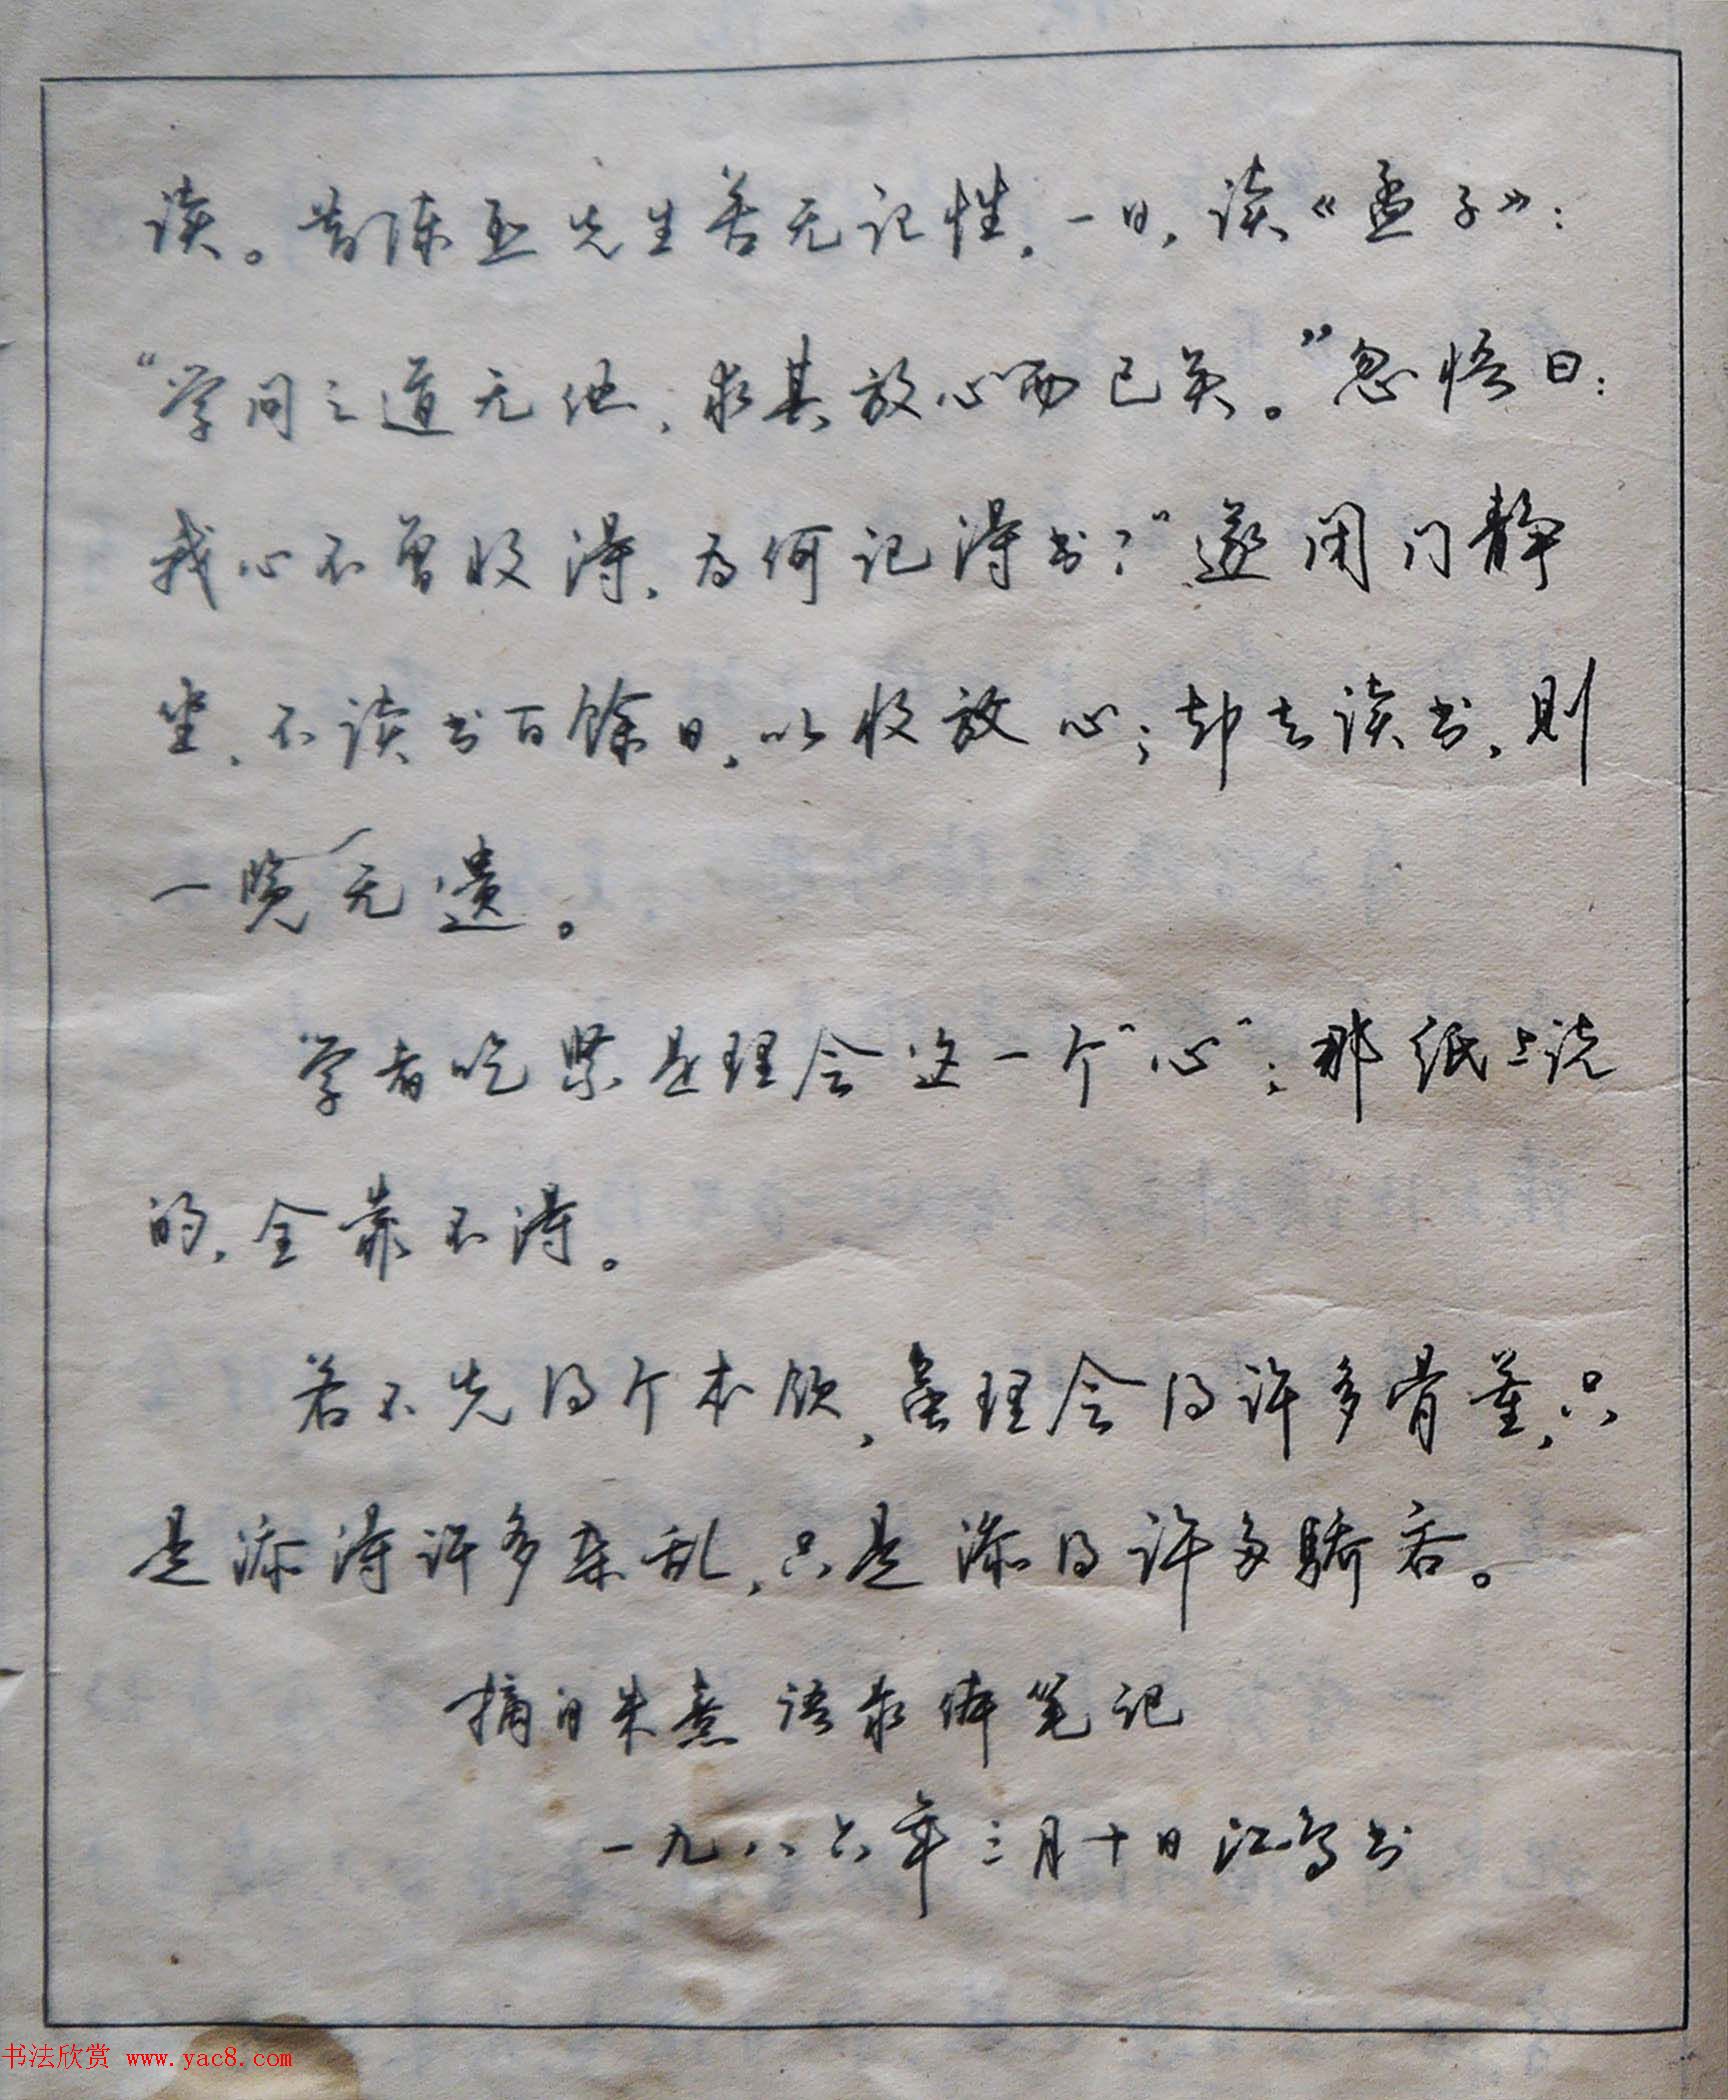 读。昔陈亚先生苦无记性，一日，读《孟子》：
“学问之道无他，求其放心而已矣。”忽悟曰：
我心不曾收得，为何记得书？”遂闭门静
坐，不读书百余日，以收放心；却去读书，则
一览无遗。
学者吃紧是理会这一个“心”；那纸上说
的，全靠不得。
若不先得个本领，虽理会得许多骨董，只
是添得许多杂乱，只是添得许多骄吝。
摘自朱熹语录体笔记
一九八六年三月十日江鸟书
书法欣赏 www.yac8.com